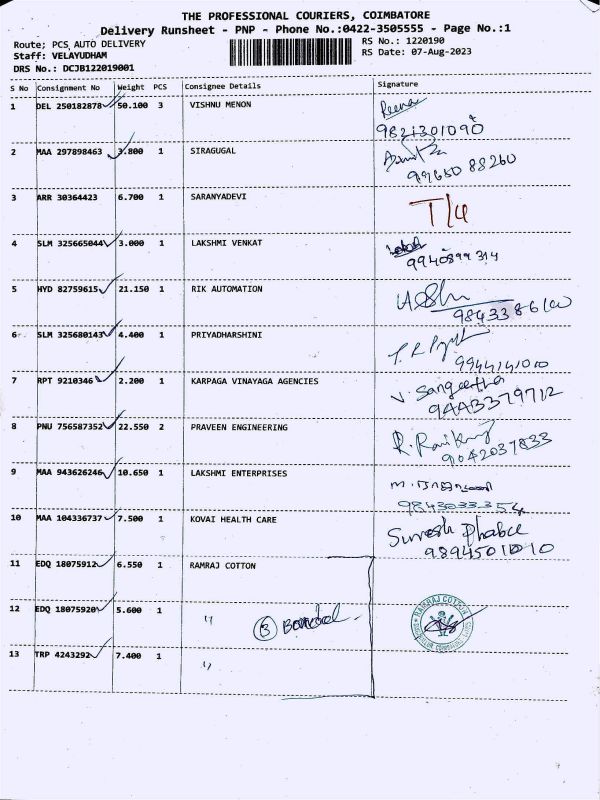 THE PROFESSIONAL COURIERS, COIMBATORE
Delivery Runsheet - PNP - Phone No.:0422-3505555 - Page No.:1
Route; PCS AUTO DELIVERY
RS No.: 1220190
Staff: VELAYUDHAM
RS Date: 07-Aug-2023
DRS No.: DCJB122019001
S No Consignment No Weight PCS Consignee Details Signature
1 DEL 250182878 50.100 3 VISHNU MENON Reena
9821301090
2 MAA 297898463 3.800 1 SIRAGUGAL
99650 88260
3 ARR 30364423 6.700 1 SARANYADEVI T/4
4 SLM 325665044 3.000 1 LAKSHMI VENKAT
9940899314
5 HYD 82759615 21.150 1 RIK AUTOMATION
6 SLM 325680143 4.400 1 PRIYADHARSHINI
9944141010
7 RPT 9210346 2.200 1 KARPAGA VINAYAGA AGENCIES V. Sangeetha
9443379712
8 PNU 756587352 22.550 2 PRAVEEN ENGINEERING
9042037833
9 MAA 943626246 10.650 1 LAKSHMI ENTERPRISES
9843033354
10 MAA 104336737 7.500 1 KOVAI HEALTH CARE Suresh
9894501010
11 EDQ 18075912 6.550 1 RAMRAJ COTTON
12 EDQ 18075920 5.600 1 "
3
RAMRAJ COTTON
13 TRP 4243292 7.400 1 "